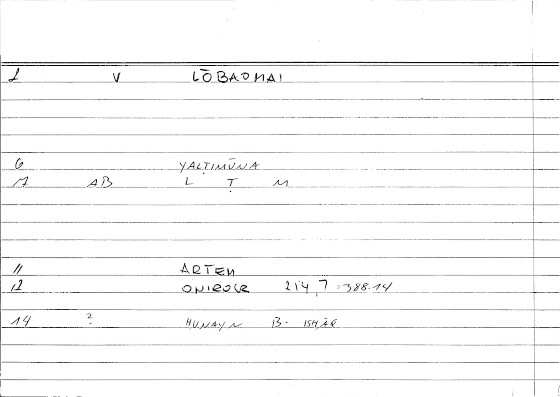 1 V LŌBAOMAI
6 YALṬIMŪNA
A AB L Ṭ M
11 ARTEM
12 ONIROCR 214,7 = 388.14
14 ? HUNAYN B. ISḤĀQ